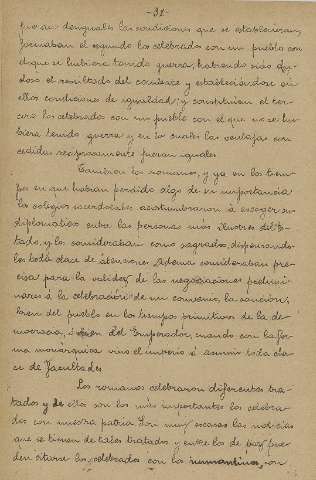 - 31 -
fueran desiguales las condiciones que se establecieran;
formaban el segundo los celebrados con un pueblo con
el que se hubiera tenido guerra, habiendo sido du-
doso el resultado del combate y estableciéndose en
ellos condiciones de igualdad; y constituían el ter-
cero los celebrados con un pueblo con el que no se hu-
biera tenido guerra y en lo cuales las ventajas con-
cedidas recíprocamente fueran iguales.
También los romanos, y ya en los tiem-
pos en que habían perdido algo de su importancia
los colegios sacerdotales acostumbraron á escoger sus
diplomáticos entre las personas más ilustres del Es-
tado, y los consideraban como sagrados, dispensando-
les toda clase de atenciones. Además consideraban pre-
cisa para la validez de las negociaciones prelimi-
nares á la celebración de un convenio, la sanción,
bien del pueblo en los tiempos primitivos de la de-
mocracia, ó bien del Emperador, cuando con la for-
ma monárquica vino el imperio á asumir toda cla-
se de facultades
Los romanos celebraron diferentes tra-
tados y de ellos son los más importantes los celebra-
dos con nuestra patria. Son muy escasas las noticias
que se tienen de tales tratados y entre los de paz pue-
den citarse los celebrados con la numantina, con